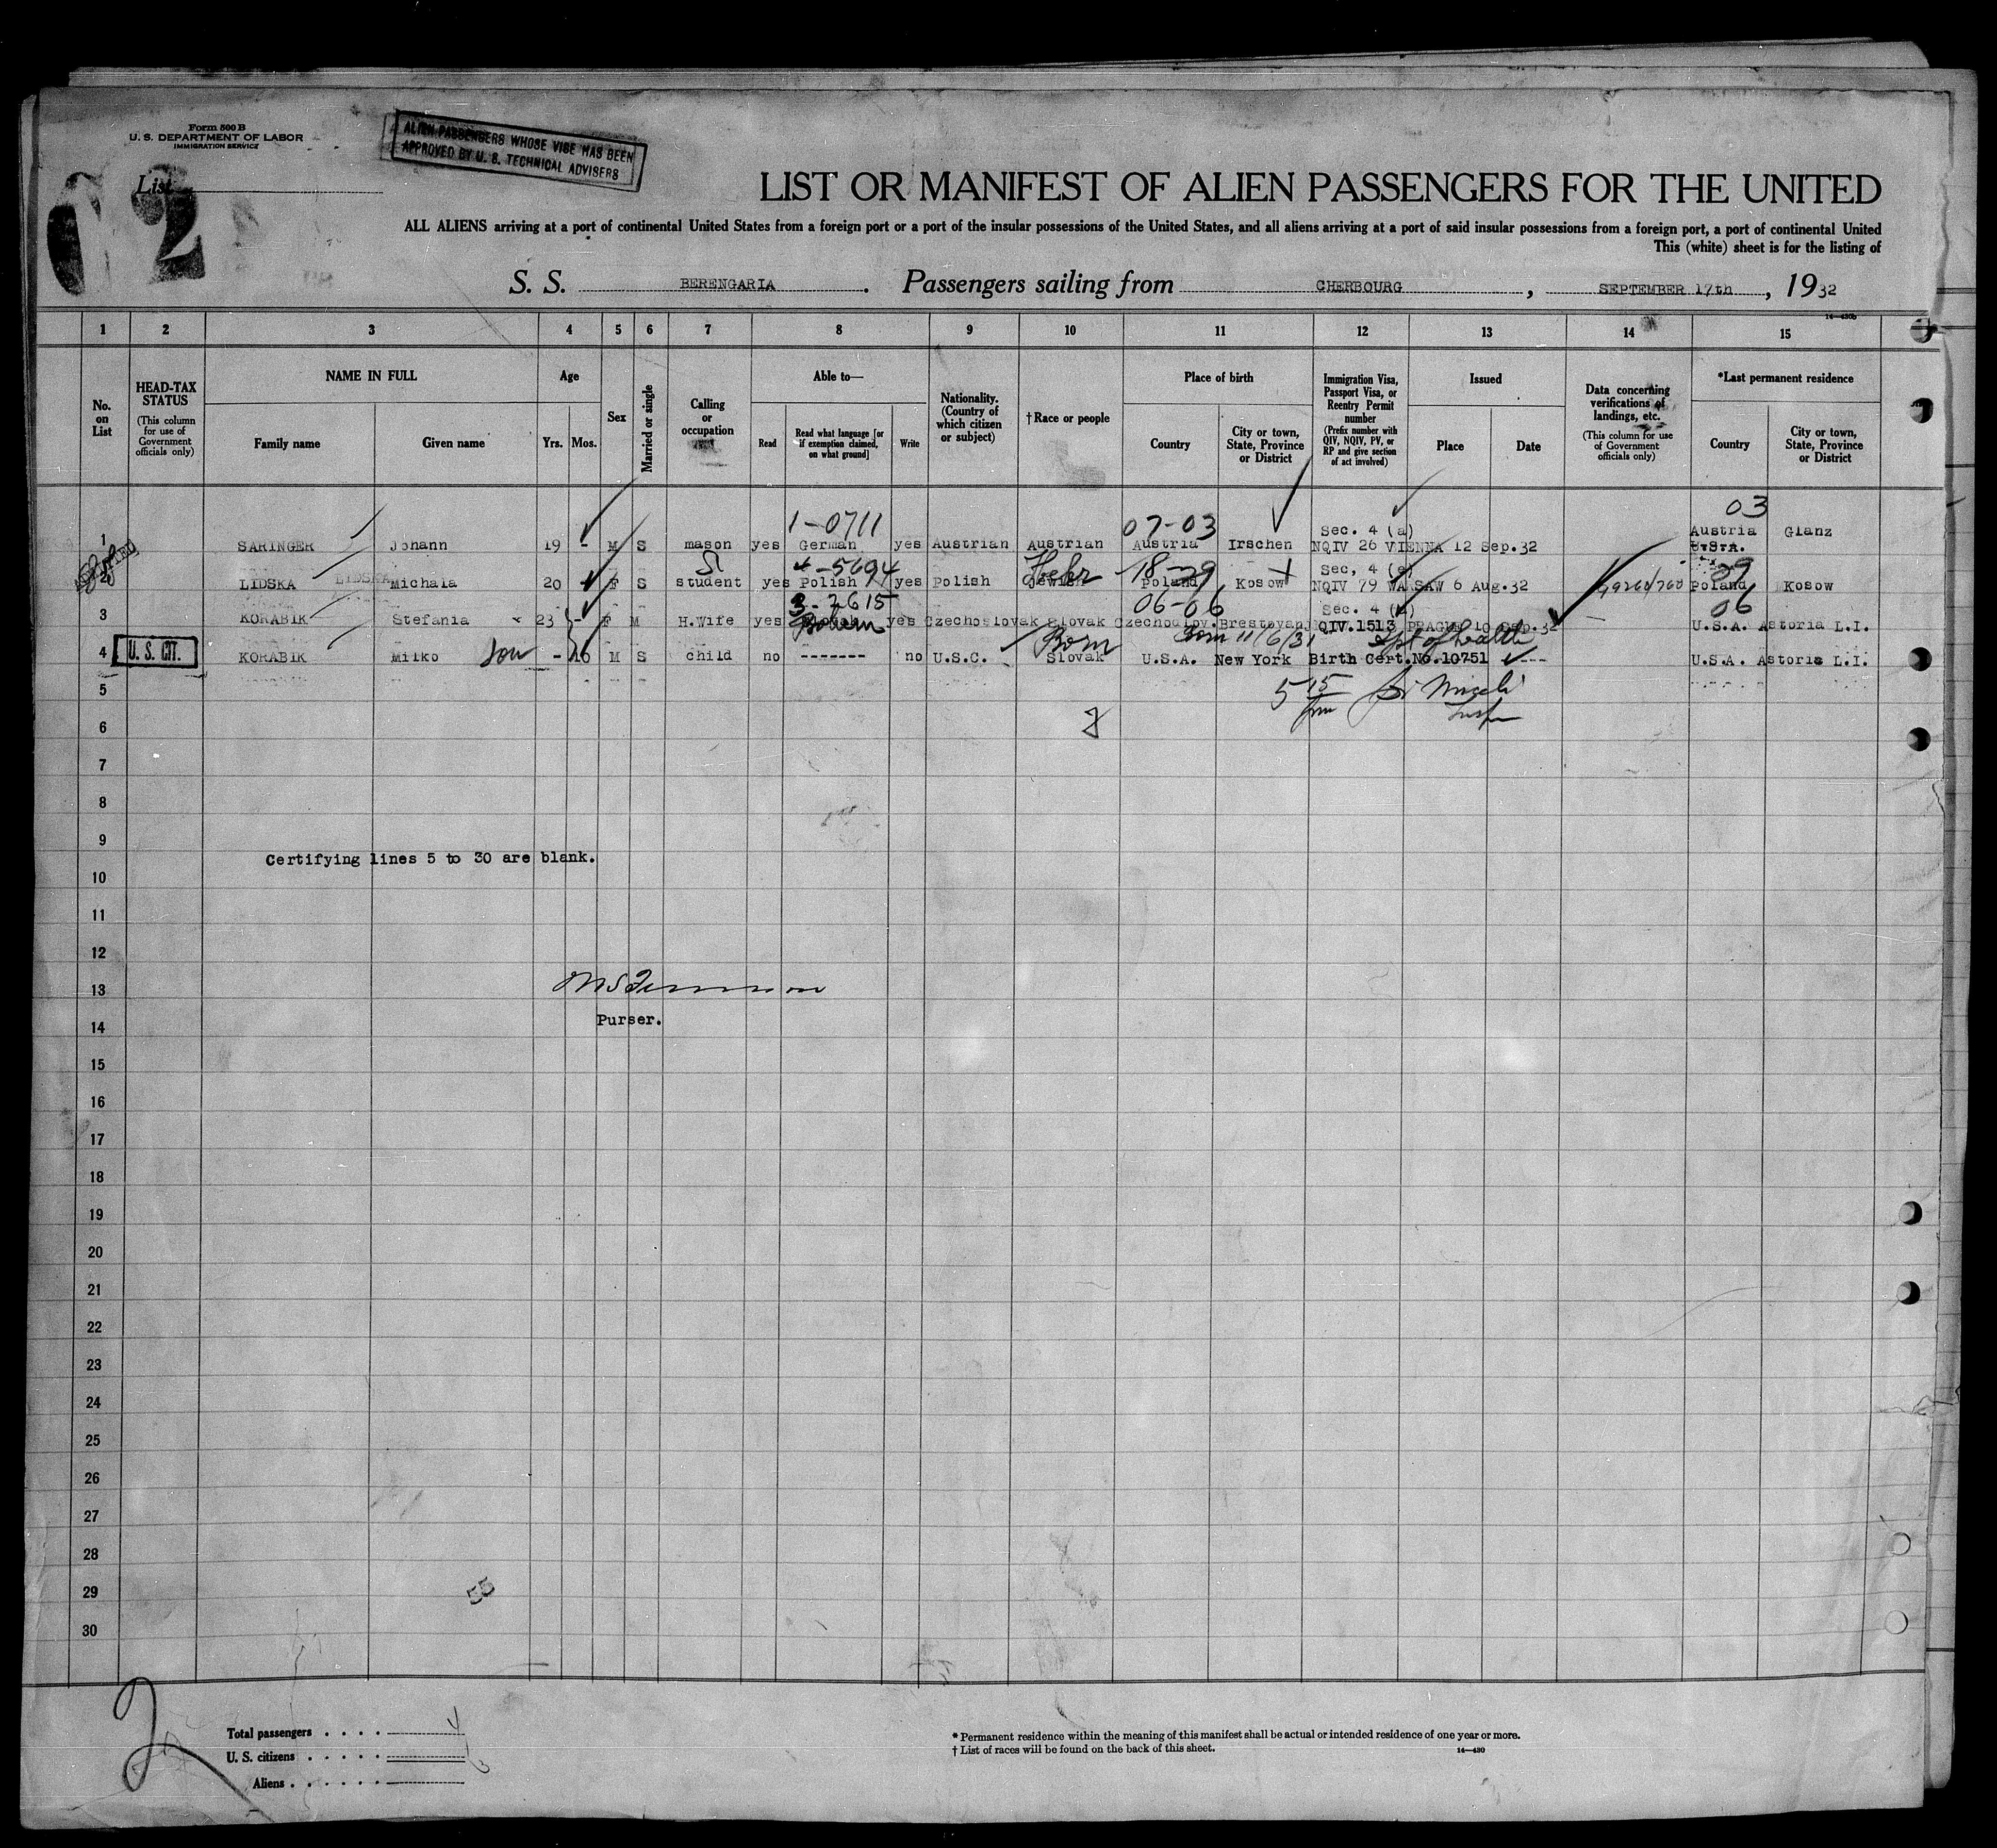 Form 500 B
U. S. DEPARTMENT OF LABOR
IMMIGRATION SERVICE
ALIEN PASSENGERS WHOSE VISE HAS BEEN
APPROVED BY U. S. TECHNICAL ADVISERS
List
2
LIST OR MANIFEST OF ALIEN PASSENGERS FOR THE UNITED
ALL ALIENS arriving at a port of continental United States from a foreign port or a port of the insular possessions of the United States, and all aliens arriving at a port of said insular possessions from a foreign port, a port of continental United
This (white) sheet is for the listing of
S. S. BERENGARIA. Passengers sailing from CHERBOURG, SEPTEMBER 17th, 1932
14—430b
1 2 3 4 5 6 7 8 9 10 11 12 13 14 15
No. on List
HEAD-TAX STATUS
(This column for use of Government officials only)
NAME IN FULL
Family name
Given name
Age
Yrs. Mos.
Sex
Married or single
Calling or occupation
Able to—
Read
Read what language [or if exemption claimed, on what ground]
Write
Nationality. (Country of which citizen or subject)
†Race or people
Place of birth
Country
City or town, State, Province or District
Immigration Visa, Passport Visa, or Reentry Permit number
(Prefix number with QIV, NQIV, PV, or RP and give section of act involved)
Issued
Place
Date
Data concerning verifications of landings, etc.
(This column for use of Government officials only)
*Last permanent residence
Country
City or town, State, Province or District
1-0711 07-03 03
Sec. 4 (a) Austria Glanz
1 SARINGER Johann 19 - M S mason yes German yes Austrian Austrian Austria Irschen NQIV 26 VIENNA 12 Sep.32 U.S.A.
4-5694 Hebr 18-29 Sec. 4 (e) 29
2 LIDSKA LIDSKA Michala 20 - F S student yes Polish yes Polish Poland Kosow NQIV 79 WARSAW 6 Aug.32 Poland Kosow
3-2615 06-06 Sec. 4 (a) 06
3 KORABIK Stefania 23 - F M H.Wife yes yes Czechoslovak Slovak Czechoslov. Brestovan QIV.1513 PRAGUE 10 Sep.32 U.S.A. Astoria L.I.
Born Born 11/6/31 Dpt of health
4 U. S. CIT. KORABIK Milko Son - 10 M S child no ------- no U.S.C. Slovak U.S.A. New York Birth Cert.No.10751 ---- U.S.A. Astoria L.I.
5
5 15 pm
6
7
8
9
Certifying lines 5 to 30 are blank.
10
11
12
13
Purser.
14
15
16
17
18
19
20
21
22
23
24
25
26
27
28
29
55
30
2
Total passengers . . . .
U. S. citizens . . . . .
Aliens . . . . . .
* Permanent residence within the meaning of this manifest shall be actual or intended residence of one year or more.
† List of races will be found on the back of this sheet.
14—430